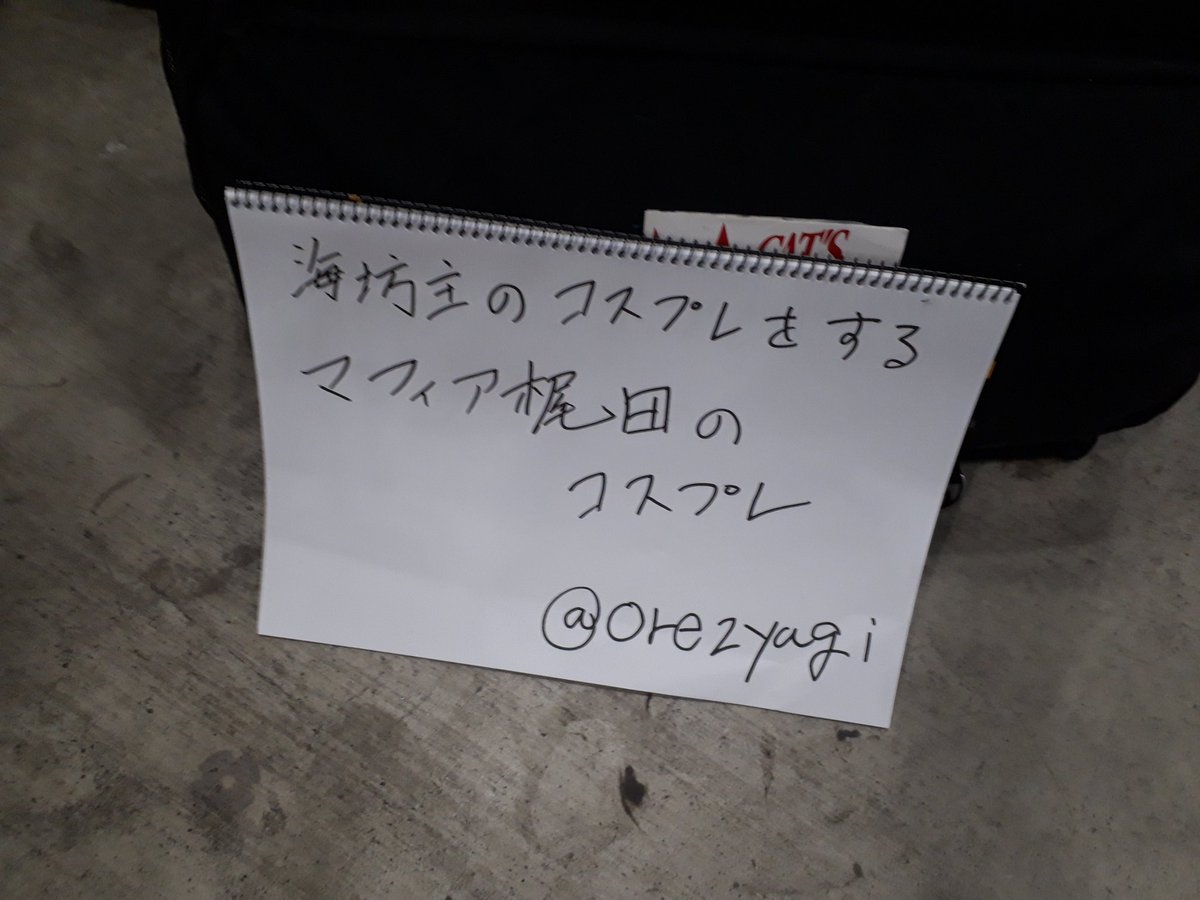 CAT'S
海坊主のコスプレをする
マフィア梶田の
コスプレ
@orezyagi